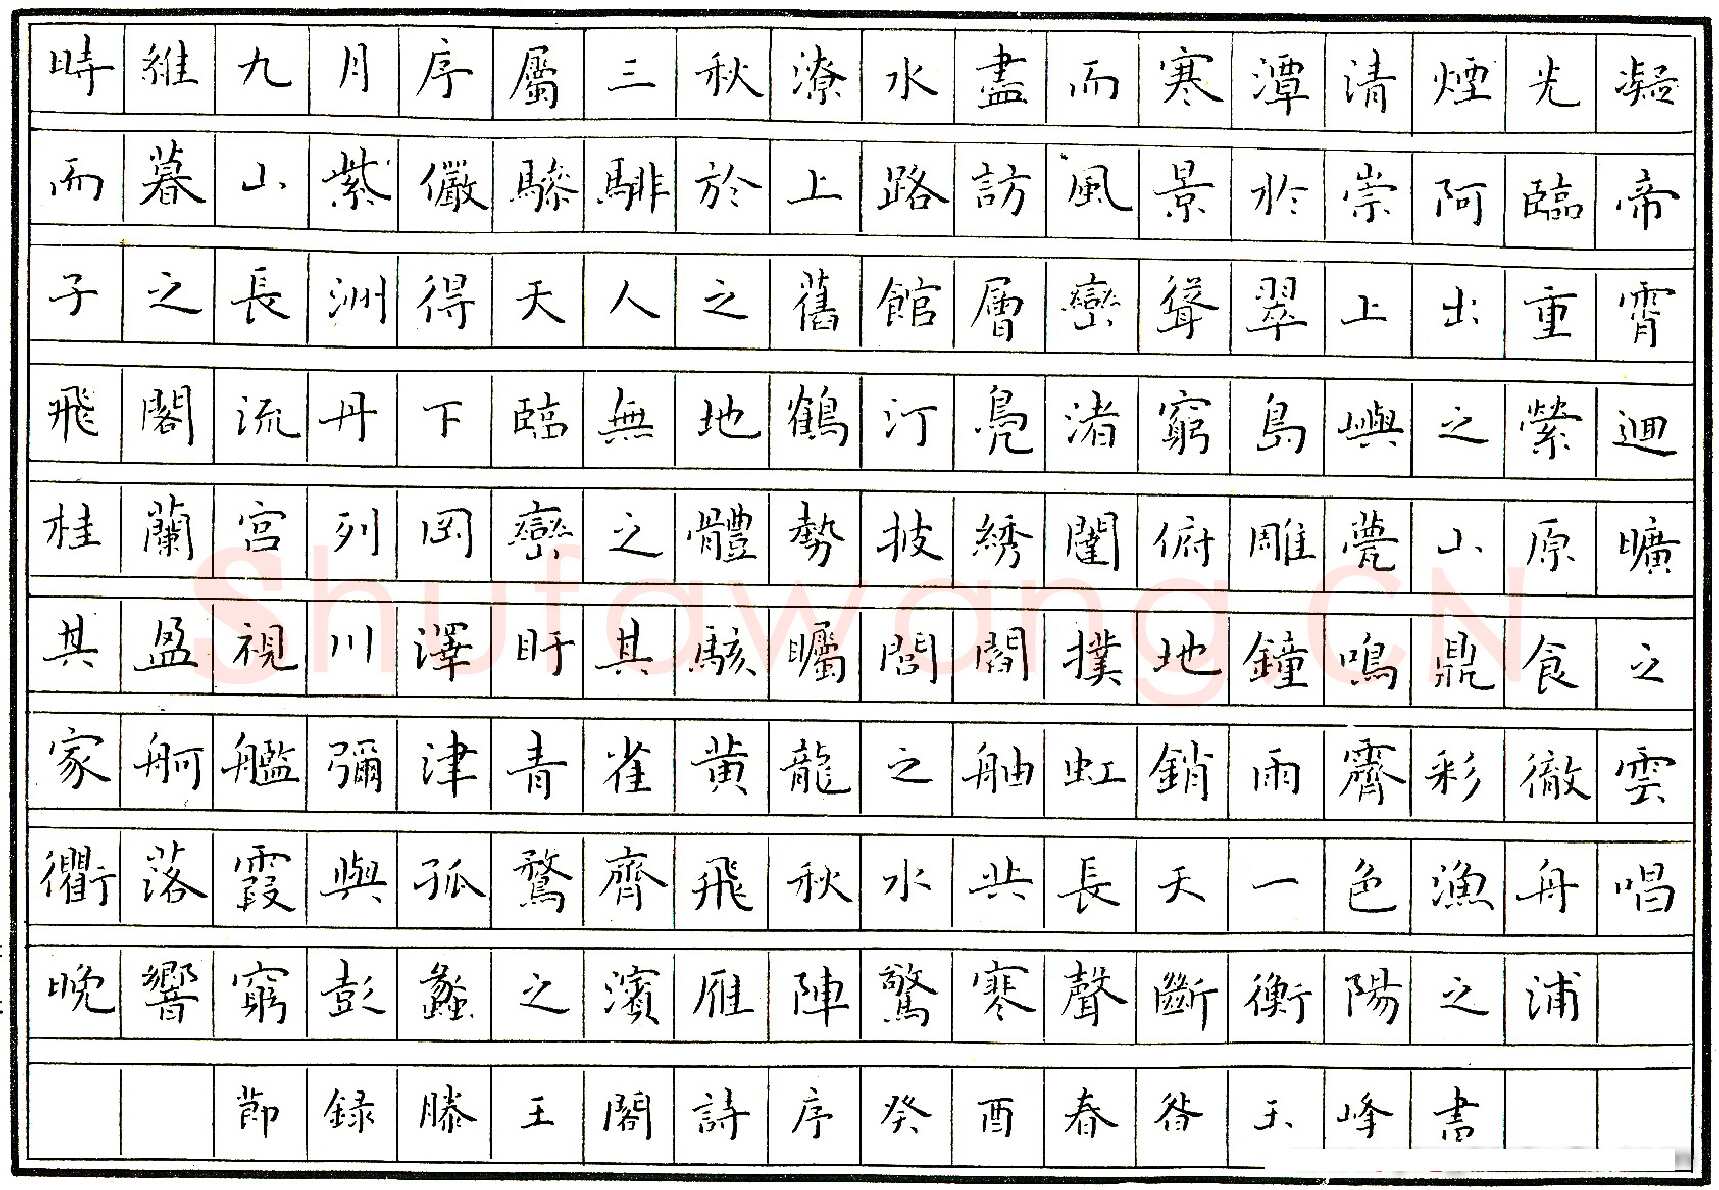 時維九月序屬三秋潦水盡而寒潭清煙光凝
而暮山紫儼驂騑於上路訪風景於崇阿臨帝
子之長洲得天人之舊館層巒聳翠上出重霄
飛閣流丹下臨無地鶴汀鳧渚窮島嶼之縈迴
桂蘭宮列岡巒之體勢披綉闥俯雕甍山原曠
其盈視川澤盱其駭矚閭閻撲地鐘鳴鼎食之
家舸艦彌津青雀黃龍之舳虹銷雨霽彩徹雲
衢落霞與孤鶩齊飛秋水共長天一色漁舟唱
晚響窮彭蠡之濱雁陣驚寒聲斷衡陽之浦
節錄滕王閣詩序癸酉春王峰書
Shufawang.CN